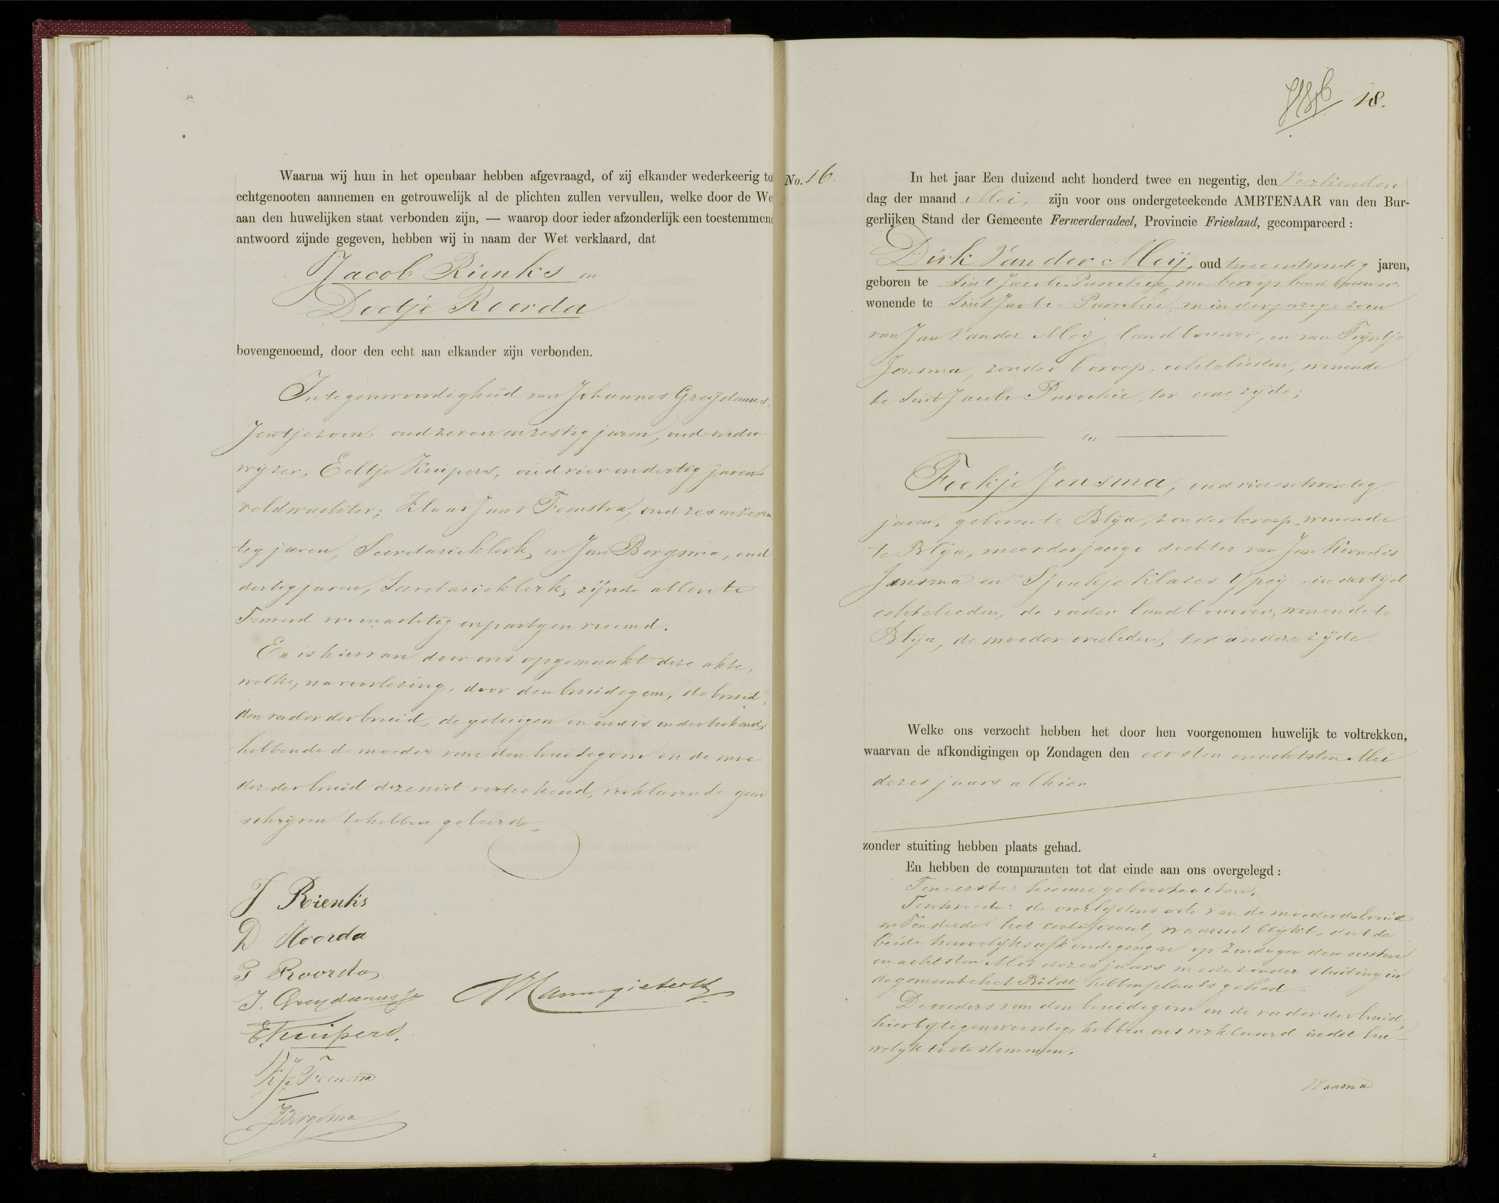 Waarna wij hun in het openbaar hebben afgevraagd, of zij elkander wederkeerig to
echtgenooten aannemen en getrouwelijk al de plichten zullen vervullen, welke door de We
aan den huwelijken staat verbonden zijn, — waarop door ieder afzonderlijk een toestemmen
antwoord zijnde gegeven, hebben wij in naam der Wet verklaard, dat
Jacob Rienks en
Doetje Roorda
bovengenoemd, door den echt aan elkander zijn verbonden.
In tegenwoordigheid van Johannes Greijdanus
Jentjezoon, oud zeven en zestig jaren, oud onder
wijzer, Eeltje Kuipers, oud vier en dertig jaren
veldwachter, Klaas Jans Feenstra, oud zes en zeven
tig jaren, Secretarieklerk, en Jan Bergsma, oud
dertig jaren, Secretarieklerk, zijnde allen te
Ferwerd woonachtig en partyen vreemd.
En is hiervan door ons opgemaakt deze akte,
welke, na voorlezing, door den bruidegom, de bruid,
den vader der bruid, de getuigen en ons is onderteekend,
hebbende de moeder van den bruidegom en de moe
der der bruid deze niet onderteekend, verklarende geen
schryven te hebben geleerd.
J Rienks
D Roorda
P Roorda
J. Greydanus Jz
E Kuipers.
K Js Feenstra
JBergsma
18.
No. 16.
In het jaar Een duizend acht honderd twee en negentig, den Veertienden
dag der maand Mei, zijn voor ons ondergeteekende AMBTENAAR van den Bur-
gerlijken Stand der Gemeente Ferwerderadeel, Provincie Friesland, gecompareerd:
Dirk Van der Meij, oud twee en twintig jaren,
geboren te Sint Jacobi Parochie, van beroep landbouwer
wonende te Sint Jacobi Parochie, minderjarige zoon
van Jan Van der Meij, landbouwer, en van Trijntje
Jensma, zonder beroep, echtelieden, wonende
te Sint Jacobi Parochie, ter eene zijde;
en
Foekje Jensma, oud vier en twintig
jaren, geboren te Blija, zonder beroep, wonende
te Blija, meerderjarige dochter van Jan
Jensma en Sjoukje Klazes Ypeij, in der tijd
echtelieden, de vader landbouwer, wonende te
Blija, de moeder overleden, ter andere zijde
Welke ons verzocht hebben het door hen voorgenomen huwelijk te voltrekken,
waarvan de afkondigingen op Zondagen den eersten en achtsten Mei
dezes jaars alhier
zonder stuiting hebben plaats gehad.
En hebben de comparanten tot dat einde aan ons overgelegd:
Ten eerste: hunne geboorteakten,
Ten tweede: de overlijdensakte van de moeder der bruid
en Ten derde: het certificaat, waaruit blijkt, dat de
beide huwelijksafkondigingen op Zondagen den eersten
en achtsten Mei dezes jaars mede zonder stuiting in
de gemeente het Bildt hebben plaats gehad.
De ouders van den bruidegom en de vader der bruid,
hierbij tegenwoordig, hebben ons verklaard in dit hu-
welijk toe te stemmen.
Waarna